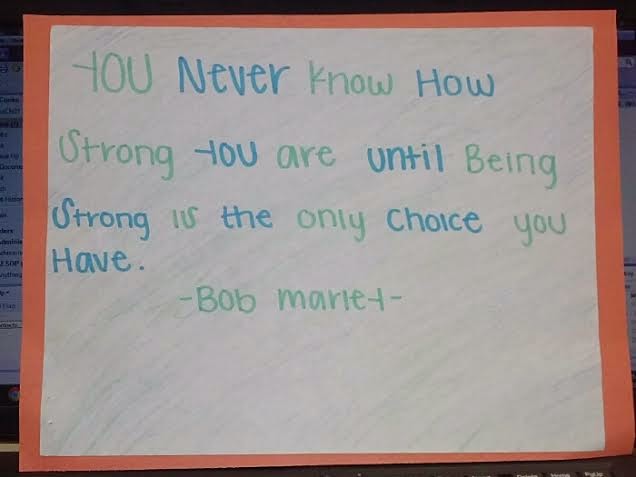 YOU Never Know How
Strong YOU are until Being
Strong is the only choice you
Have.
-Bob marley-